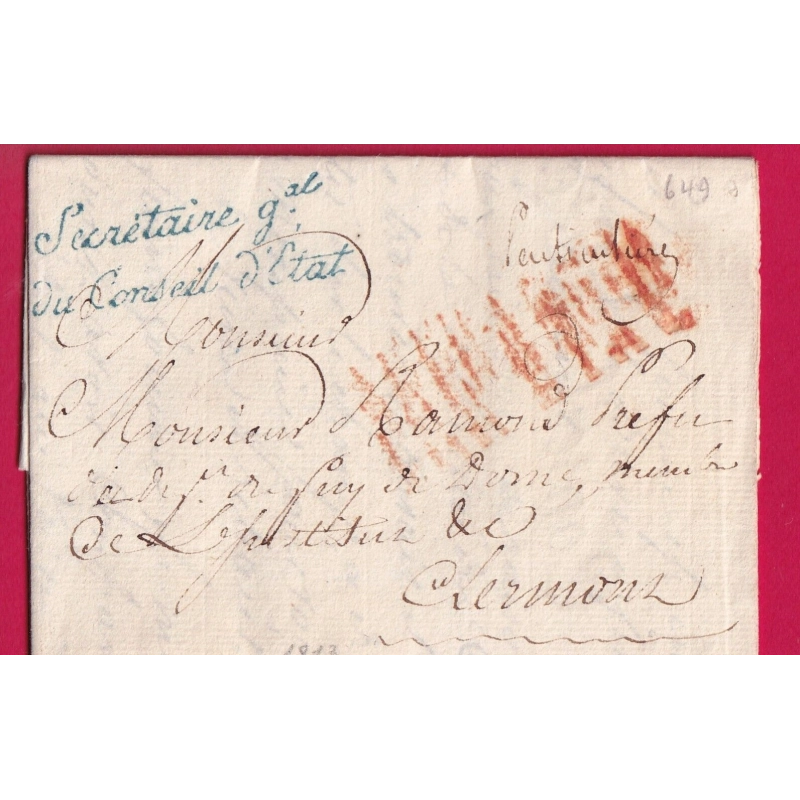 649
Secrétaire g.al
du Conseil d'Etat
Particulière
Monsieur
Monsieur Ramond Prefet
du de pt. du Puy de Dome, membre
de L'institut &c
Clermont
1813